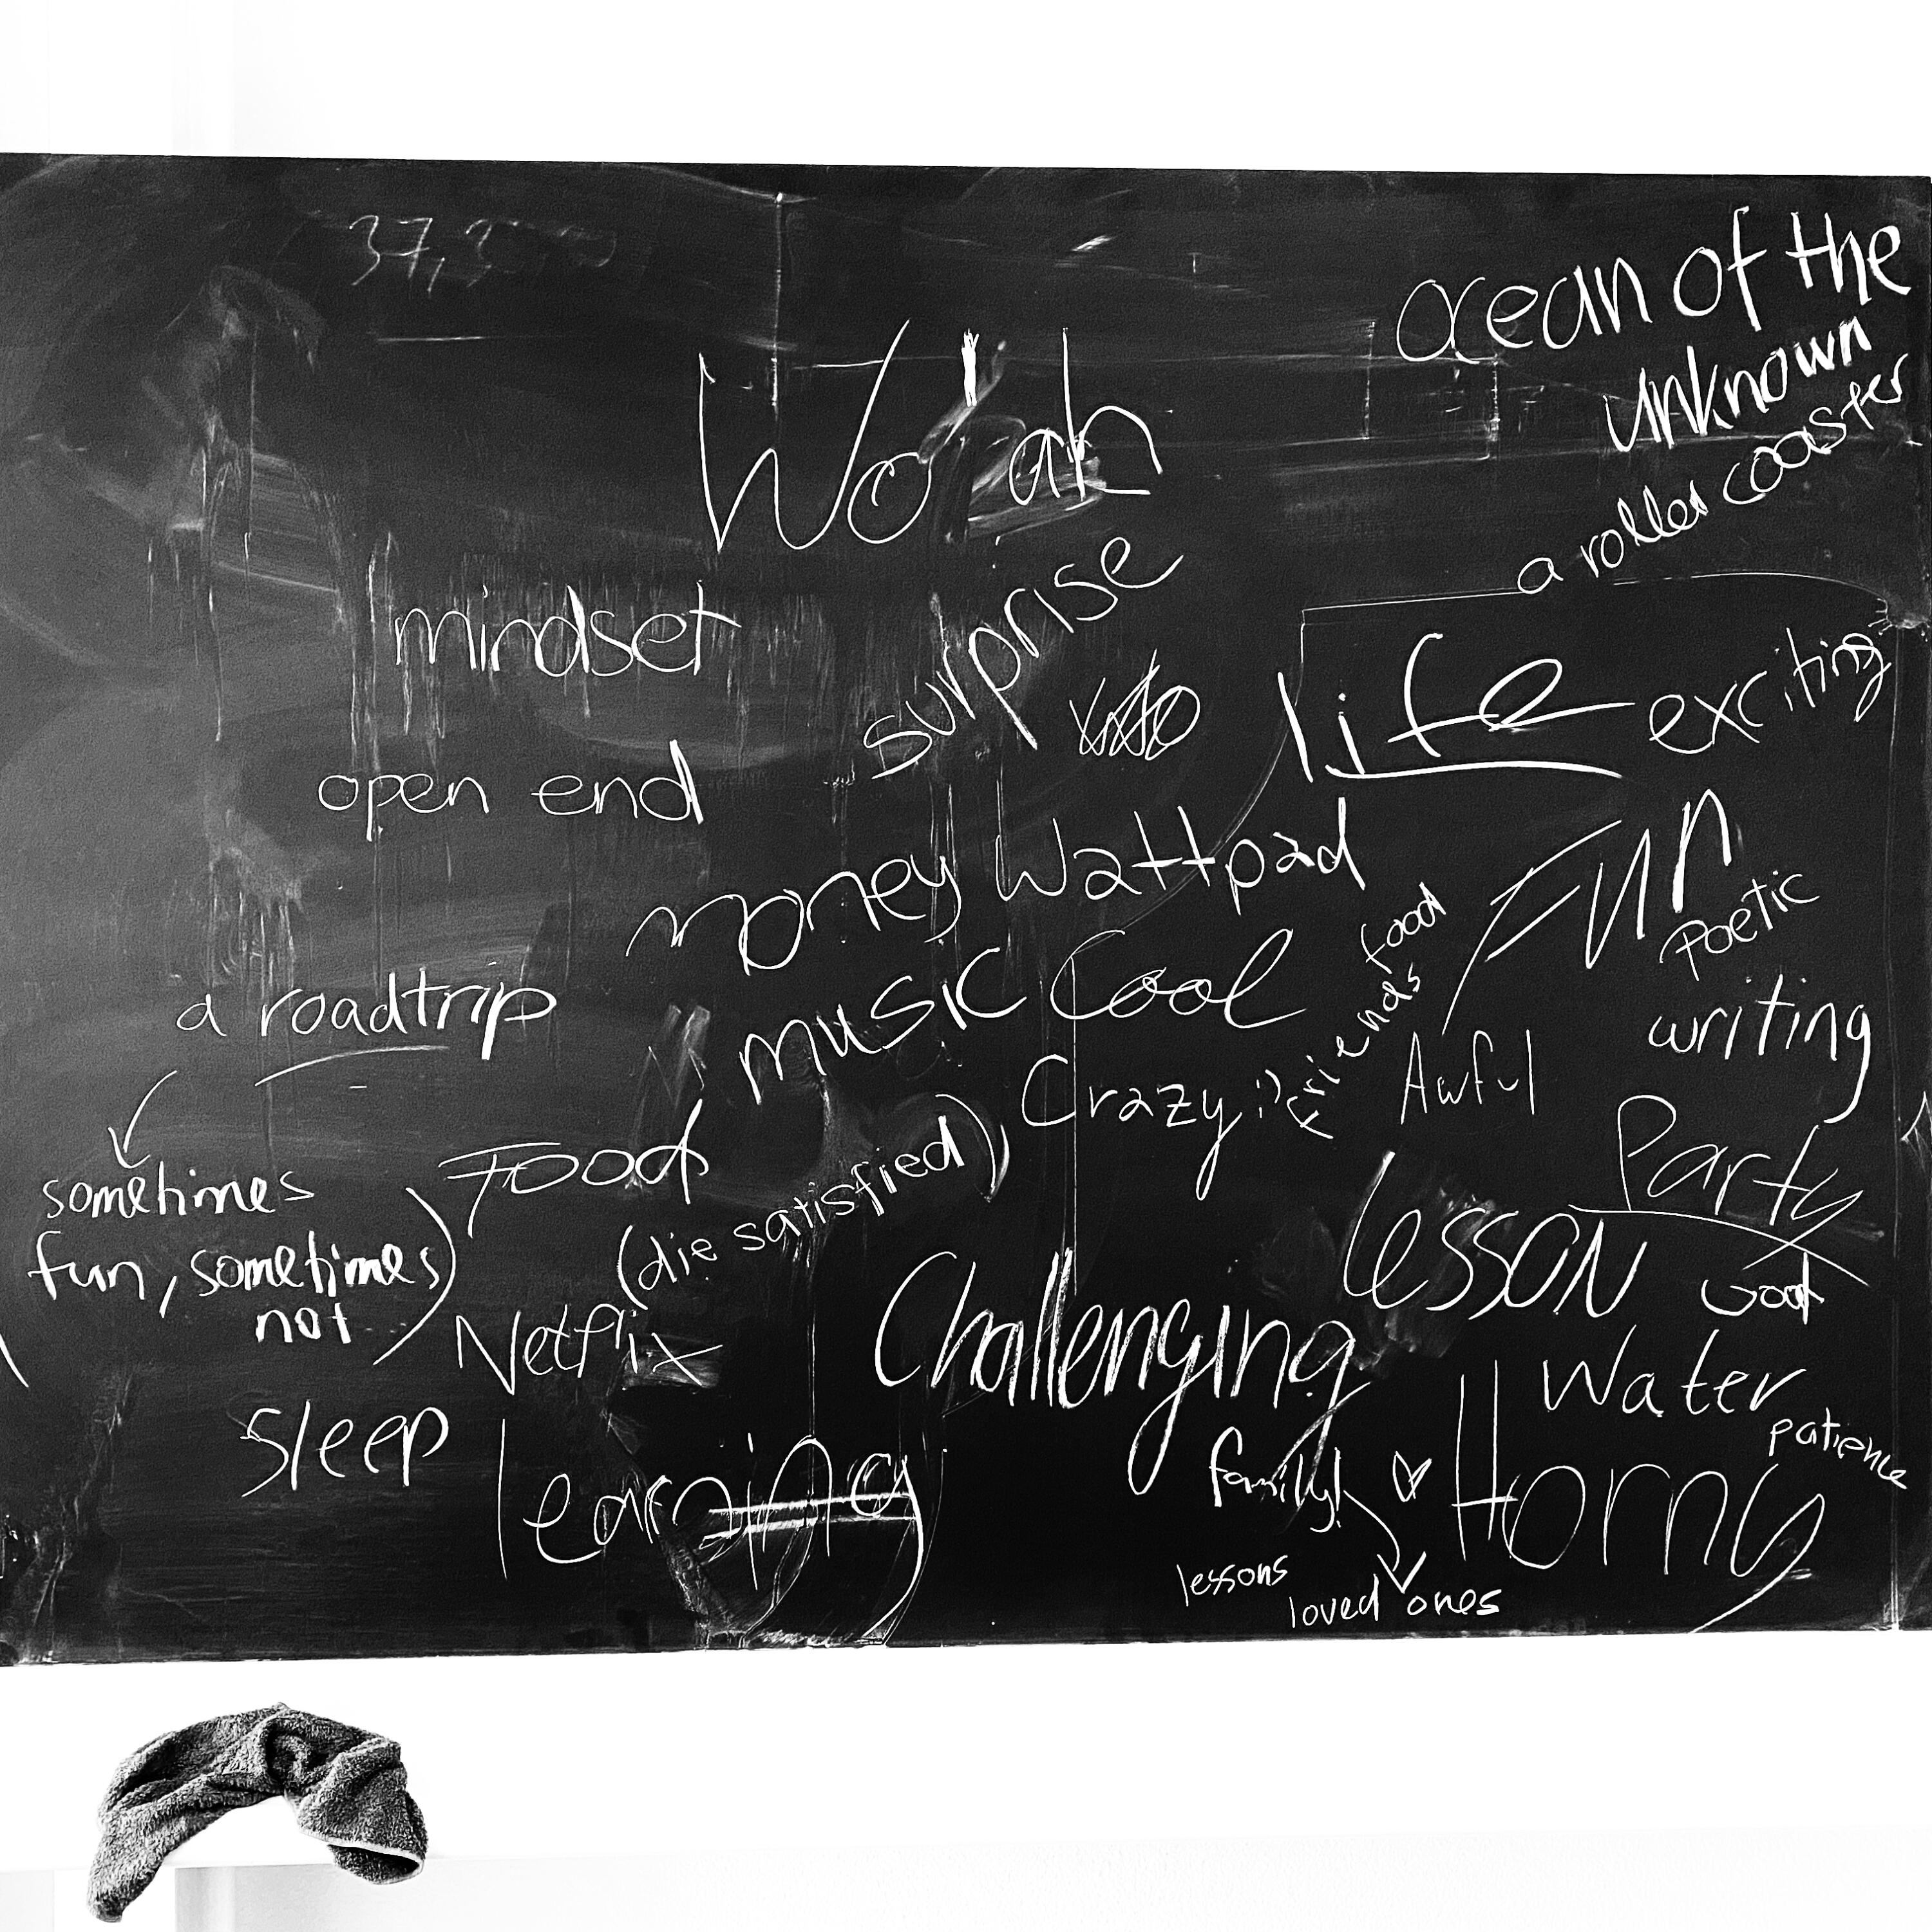 ocean of the
unknown
a roller coaster
mindset
surprise
life
exciting
open end
Fun
money
Wattpad
Poetic
music
Cool
food
friends
writing
a roadtrip
Crazy :)
Awful
Party
Food
(die satisfied)
sometimes
fun, sometimes
not
lesson
Good
Netflix
Challenging
Water
patience
Sleep
learning
family!
Horny
lessons
loved ones